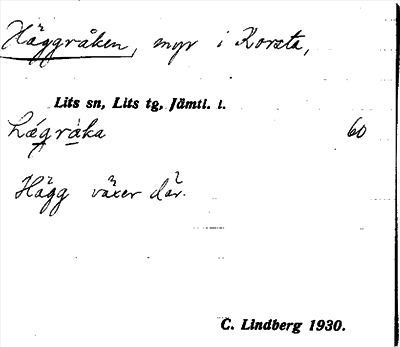 Häggråken, myr i Korsta,
Lits sn, Lits tg, Jämtl. l.
hǽgràka 60
Hägg växer där.
C. Lindberg 1930.